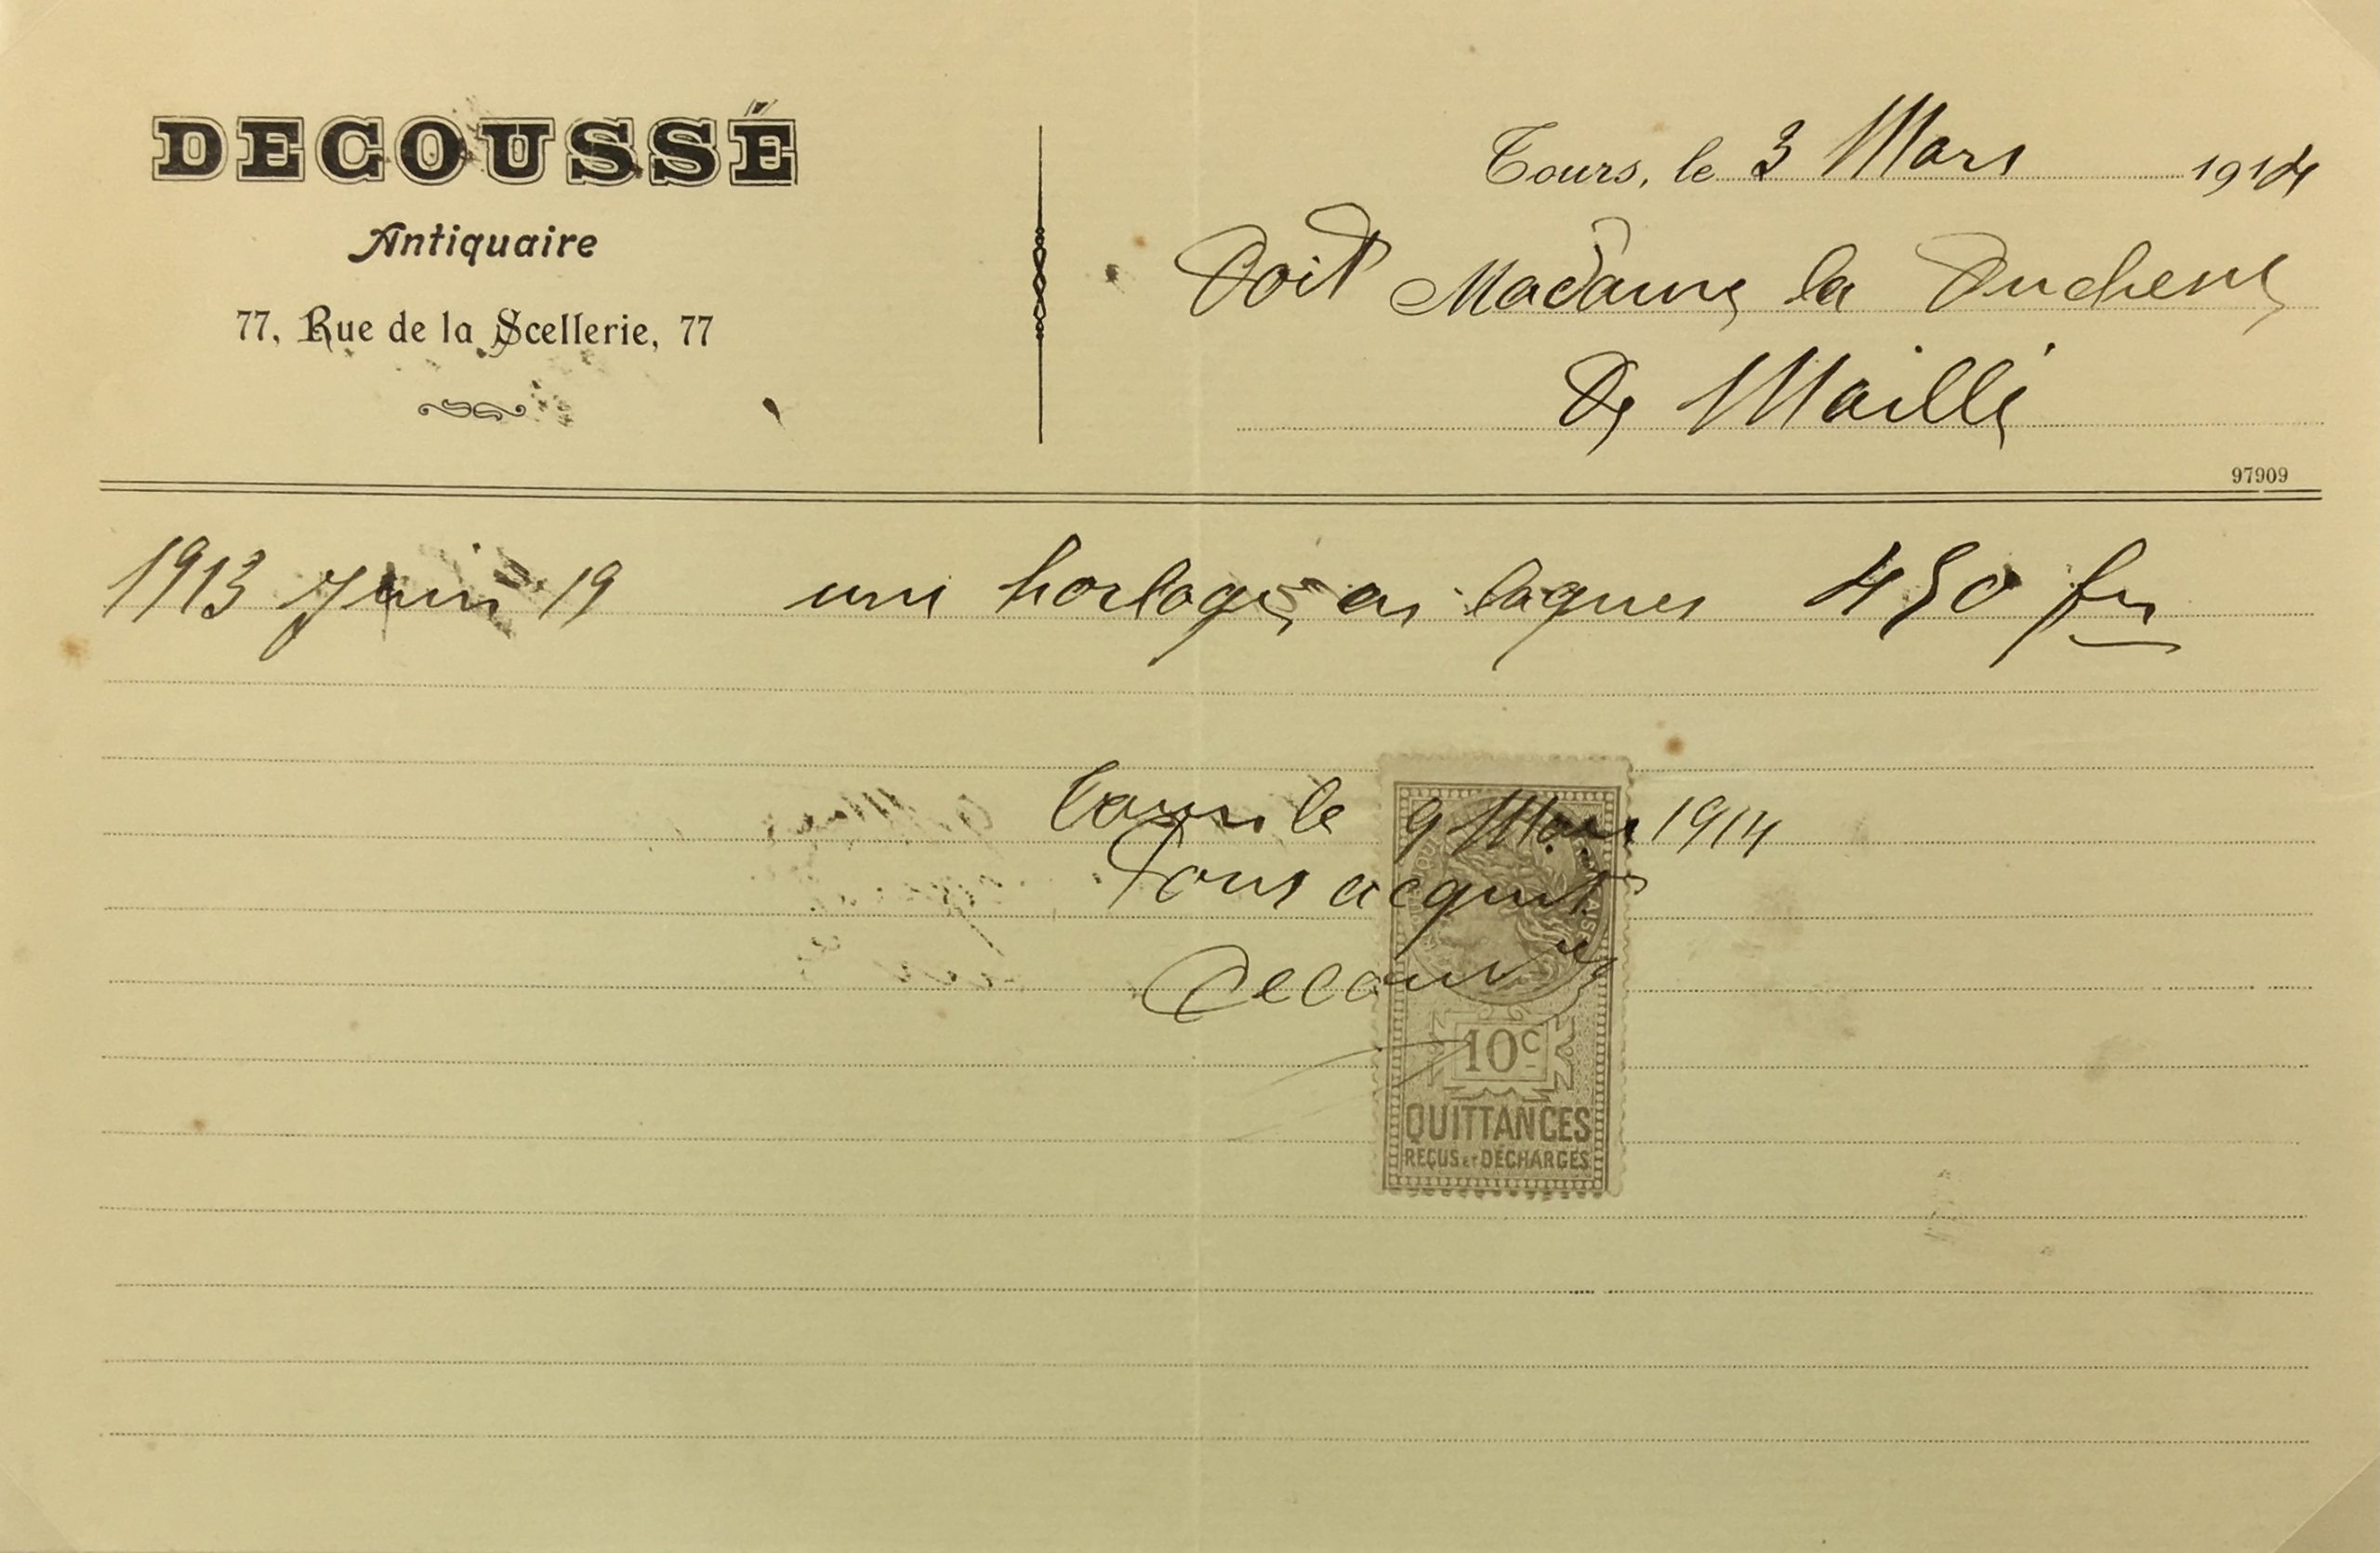 DECOUSSÉ
Antiquaire
77, Rue de la Scellerie, 77
Tours, le 3 Mars 1914
Doit Madame la Duchesse
de Maillé
97909
1913 Juin 19 une horloge en laques 450 frs
Tours le 9 Mars 1914
Pour acquit
Decoussé
10c
QUITTANCES
REÇUS ET DÉCHARGES